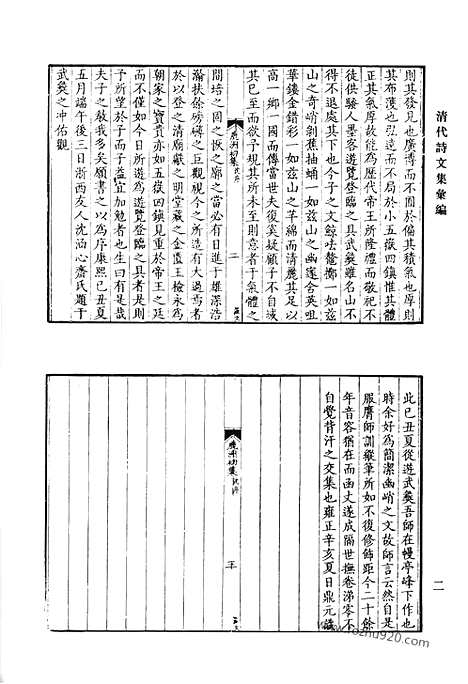 清代詩文集彙編
二
則其發見也廣博而不囿於偏其積氣也厚則
其布濩也弘遠而不局於小五嶽四鎮惟其體
正其氣厚故能為歷代帝王所隆禮而敬祀不
徒供騷人墨客遊覽登臨之具武夷雖名山不
得不退處其下也今子之文鯨呿鼇擲一如茲
山之奇峭剝蕉抽蛹一如茲山之幽邃含英咀
華鏤金錯彩一如茲山之芊綿而清麗其足以
高一鄉一國而傳當世夫復奚疑顧子不自域
其已至而欲予規其所未至則意者于氣體之
初集 沈序
二
間培之固之猒之廓之當必有日進于雄深浩
瀚扶徐磅礴之巨觀視今之所造有大過焉者
於以登之清廟獻之明堂藏之金匱玉檢永為
朝家之寶貴亦如五嶽四鎮見重於帝王之廷
而不僅如今日所遊為遊覽登臨之具者是則
予所望於子而子益宜加勉者也生曰有是哉
夫子之敎我多矣願書之以為序康熙己丑夏
五月端午後三日浙西友人沈涵心齋氏題于
武夷之冲佑觀
此己丑夏從遊武夷吾師在幔亭峰下作也
時余好為簡潔幽峭之文故師言云然自是
服膺師訓縱筆所如不復修飾距今二十餘
年音容猶在而函丈遂成隔世撫卷涕零不
自覺背汗之交集也雍正辛亥夏日鼎元識
初集 沈序